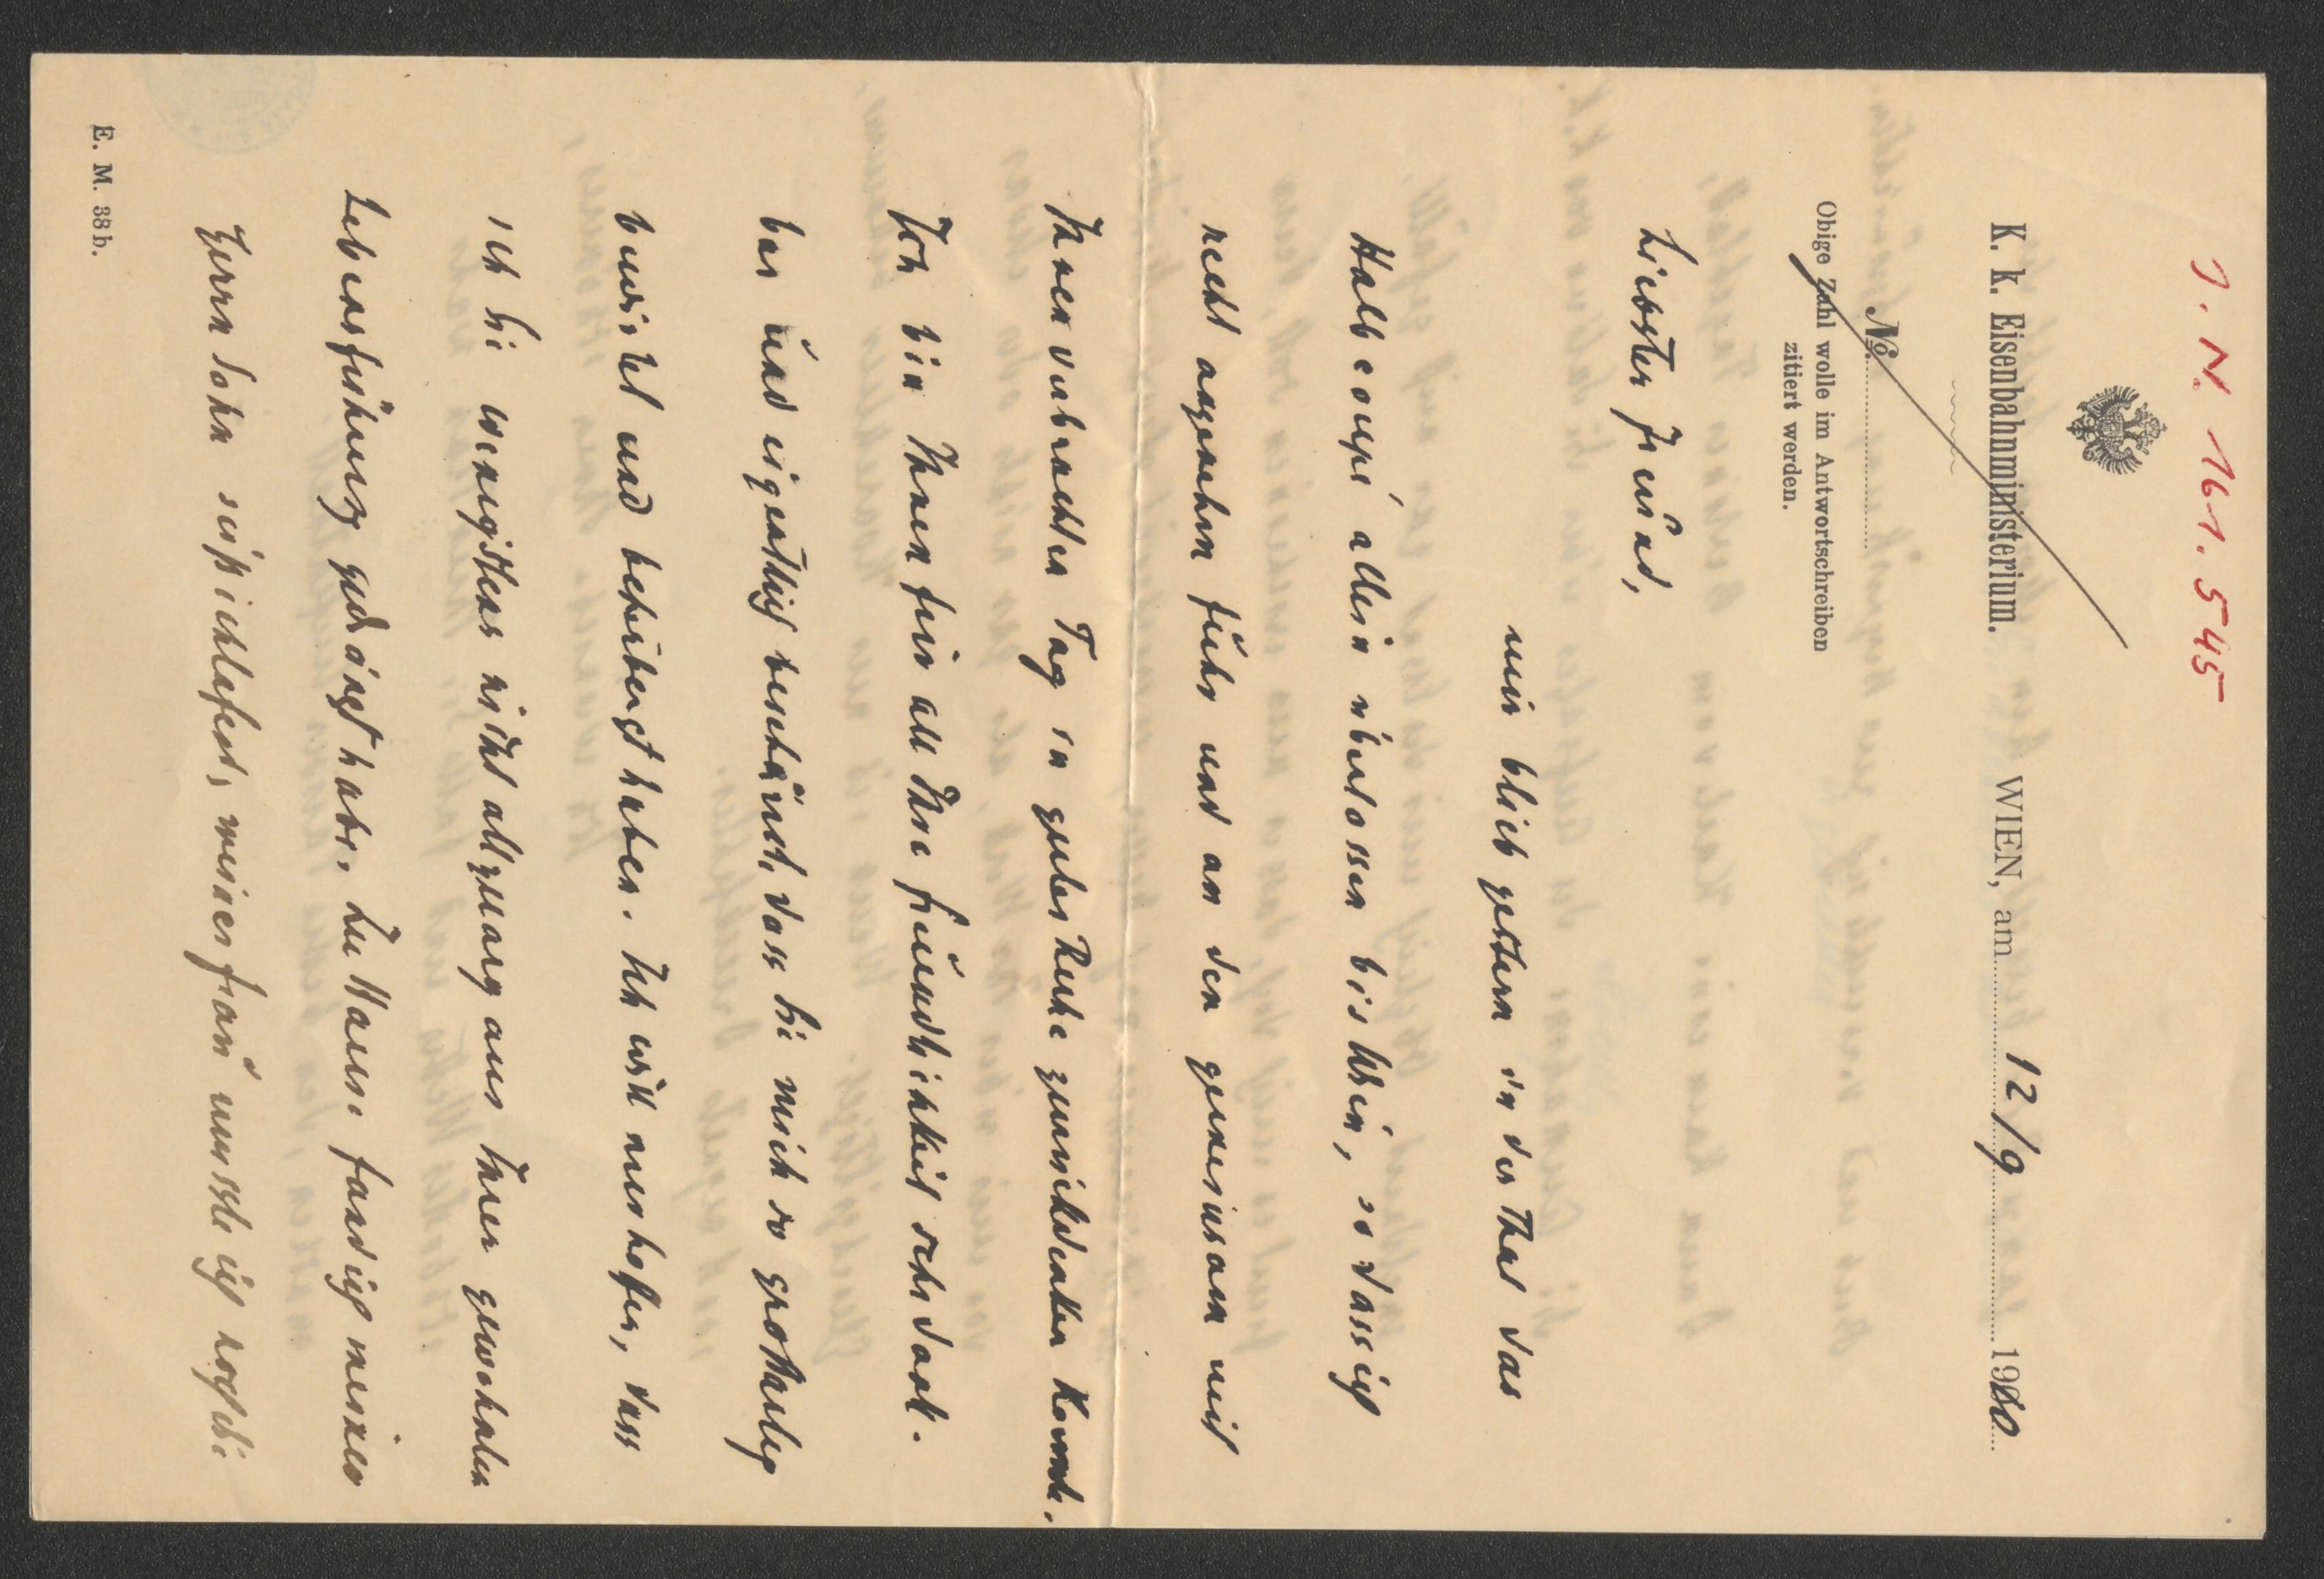 J. N. 161.545
K. k. Eisenbahnministerium.
WIEN, am 12/9 1900
№
Obige Zahl wolle im Antwortschreiben
zitiert werden.
Liebster Freund,
mir blieb gestern in der That das
Halbcoupé allein überlassen bis Wien, so dass ich
recht angenehm fuhr und an den gemeinsam mit
Ihnen verbrachten Tag in guter Ruhe zurückdenken konnte.
Ich bin Ihnen für all Ihre Freundlichkeit sehr dank-
bar und eigentlich beschämt, dass Sie mich so gastlich
bewirtet und beherbergt haben. Ich will nur hoffen, dass
ich Sie wenigstens nicht allzuarg aus Ihrer gewohnten
Lebensführung gedrängt habe. Zu Hause fand ich meinen
Herrn Sohn schlafend, meiner Frau musste ich noch die
E. M. 38 b.